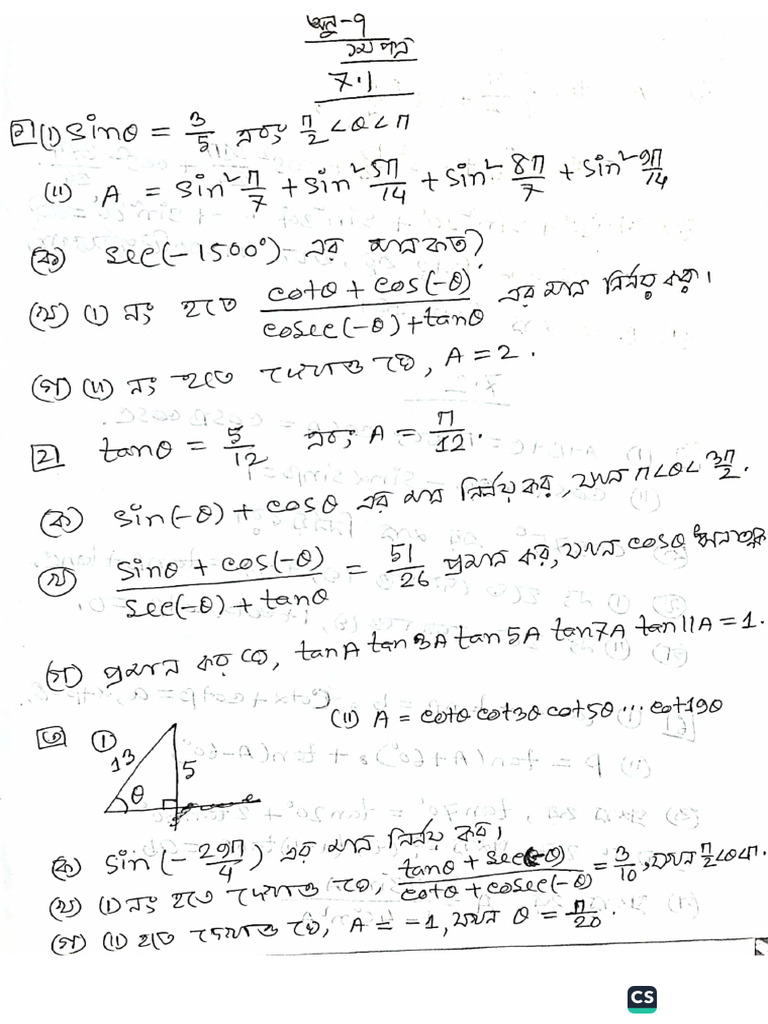 অনু-৭
১ম পত্র
7.1
১। (i) sinθ = 3/5 এবং π/2 < θ < π
(ii) A = sin² π/7 + sin² 5π/14 + sin² 8π/7 + sin² 9π/14
(ক) sec(-1500°) এর মান কত?
(খ) (i) নং হতে (cotθ + cos(-θ))/(cosec(-θ) + tanθ) এর মান নির্ণয় কর।
(গ) (ii) নং হতে দেখাও যে, A = 2.
২। tanθ = 5/12 এবং A = π/12.
(ক) sin(-θ) + cosθ এর মান নির্ণয় কর, যখন π < θ < 3π/2.
(খ) (sinθ + cos(-θ))/(sec(-θ) + tanθ) = 51/26 প্রমান কর, যখন cosθ ধনাত্মক
(গ) প্রমান কর যে, tanA tan3A tan5A tan7A tan11A = 1.
৩ (i) 13 5 θ (ii) A = cotθ cot3θ cot5θ ... cot19θ
(ক) sin(-29π/4) এর মান নির্ণয় কর।
(খ) (i) নং হতে দেখাও যে, (tanθ + sec(-θ))/(cotθ + cosec(-θ)) = 3/10, যখন π/2 < θ < π.
(গ) (ii) হতে দেখাও যে, A = -1, যখন θ = π/20.
CS